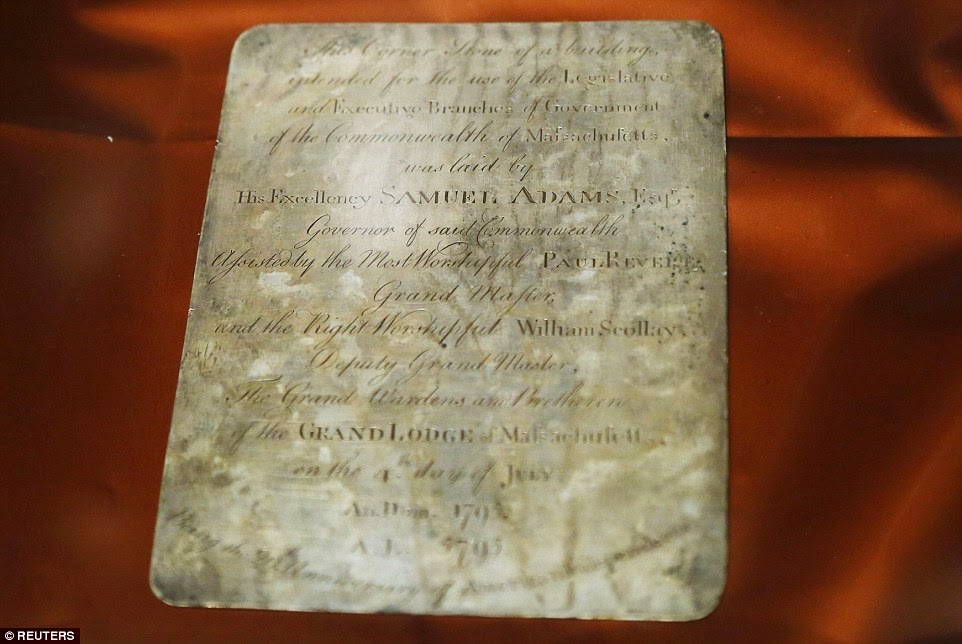 This Corner Stone of a building,
intended for the use of the Legislative
and Executive Branches of Government
of the Commonwealth of Maſsachuſetts,
was laid by
His Excellency SAMUEL ADAMS, Esqr.
Governor of said Commonwealth
Aſsisted by the Most Worshipful PAUL REVERE
Grand Maſter,
and the Right Worshipful William Scollay,
Deputy Grand Master,
The Grand Wardens and Brethren
of the GRAND LODGE of Maſsachuſetts,
on the 4th day of JULY
An. Dom. 1795.
A. L. 5795.
Being the Anniversary of
© REUTERS